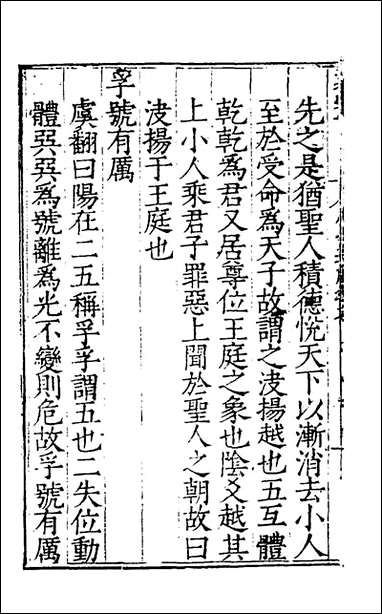 先之是猶聖人積德悅天下以漸消去小人
至於受命爲天子故謂之決揚越也五互體
乾乾爲君又居尊位王庭之象也陰爻越其
上小人乘君子罪惡上聞於聖人之朝故曰
決揚于王庭也
孚號有厲
虞翻曰陽在二五稱孚孚謂五也二失位動
體巽巽爲號離爲光不變則危故孚號有厲